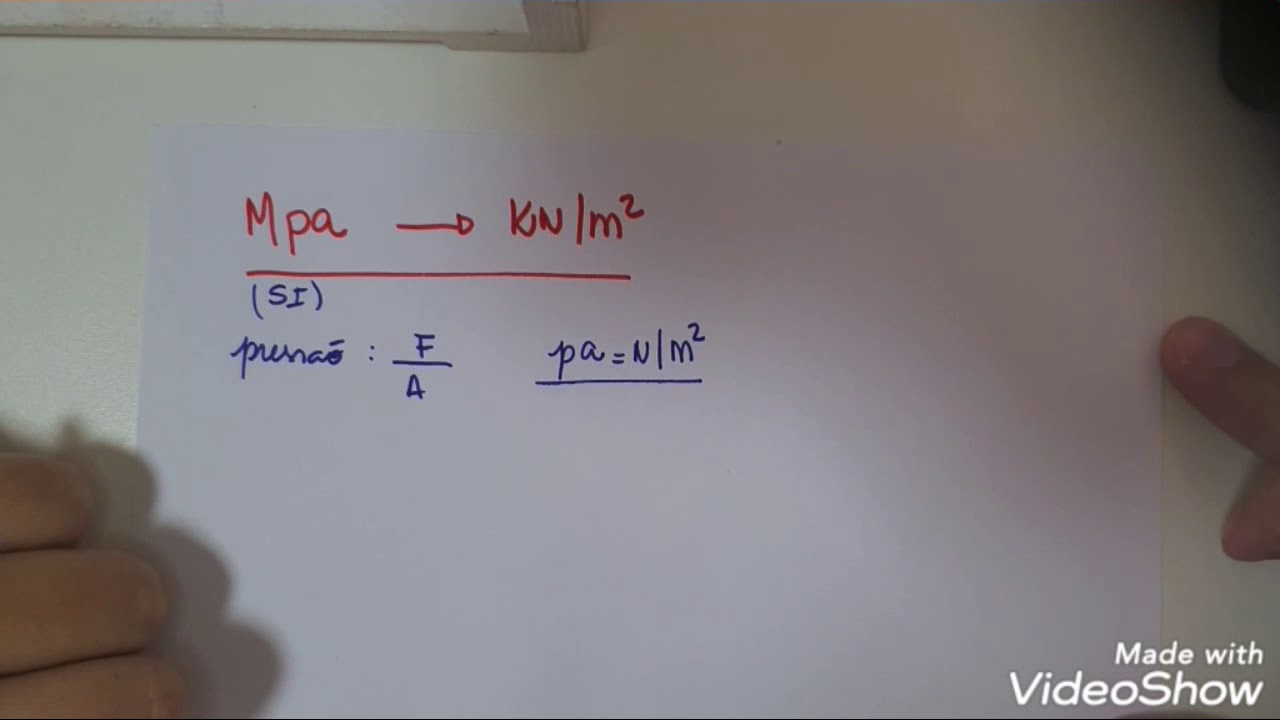 Mpa → KN/m²
(SI)
pressão : F/A pa = N/m²
Made with
VideoShow